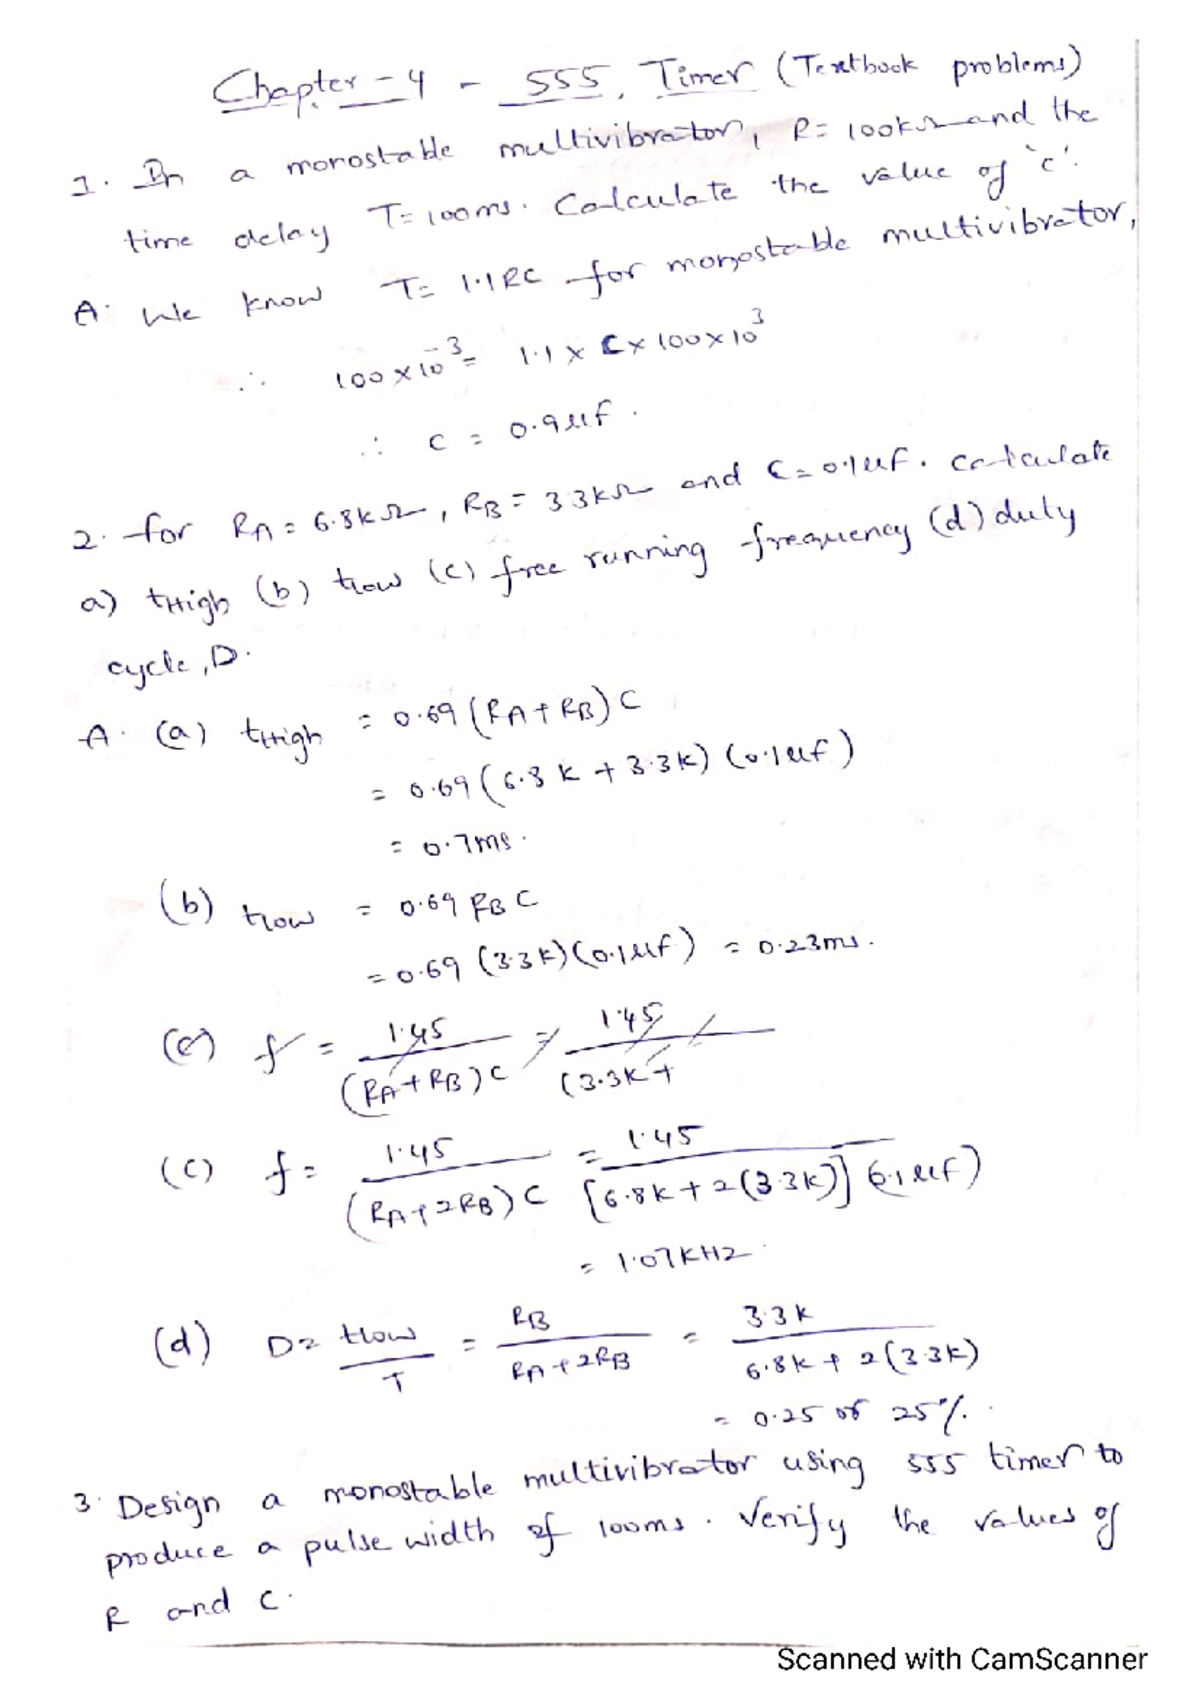 Chapter - 4 - 555 Timer (Textbook problems)
1. In a monostable multivibrator, R = 100kΩ and the
time delay T = 100ms. Calculate the value of 'c'.
A. We know T = 1.1RC for monostable multivibrator,
∴ 100 × 10^-3 = 1.1 × C × 100 × 10^3
∴ C = 0.9 μf.
2. for RA = 6.8kΩ, RB = 3.3kΩ and C = 0.1μF. calculate
a) tHigh (b) tlow (c) free running frequency (d) duty
cycle, D.
A. (a) tHigh = 0.69 (RA + RB) C
= 0.69 (6.8 k + 3.3k) (0.1μf)
= 0.7ms.
(b) tlow = 0.69 RB C
= 0.69 (3.3k) (0.1μf) = 0.23ms.
(c) f = 1.45 / (RA + RB) C = 1.45 / (3.3k +
(c) f = 1.45 / (RA + 2RB) C = 1.45 / [6.8k + 2(3.3k)] (0.1μf)
= 1.07KHz.
(d) D = tlow / T = RB / RA + 2RB = 3.3k / 6.8k + 2(3.3k)
= 0.25 or 25%.
3. Design a monostable multivibrator using 555 timer to
produce a pulse width of 100ms. Verify the values of
R and C.
Scanned with CamScanner